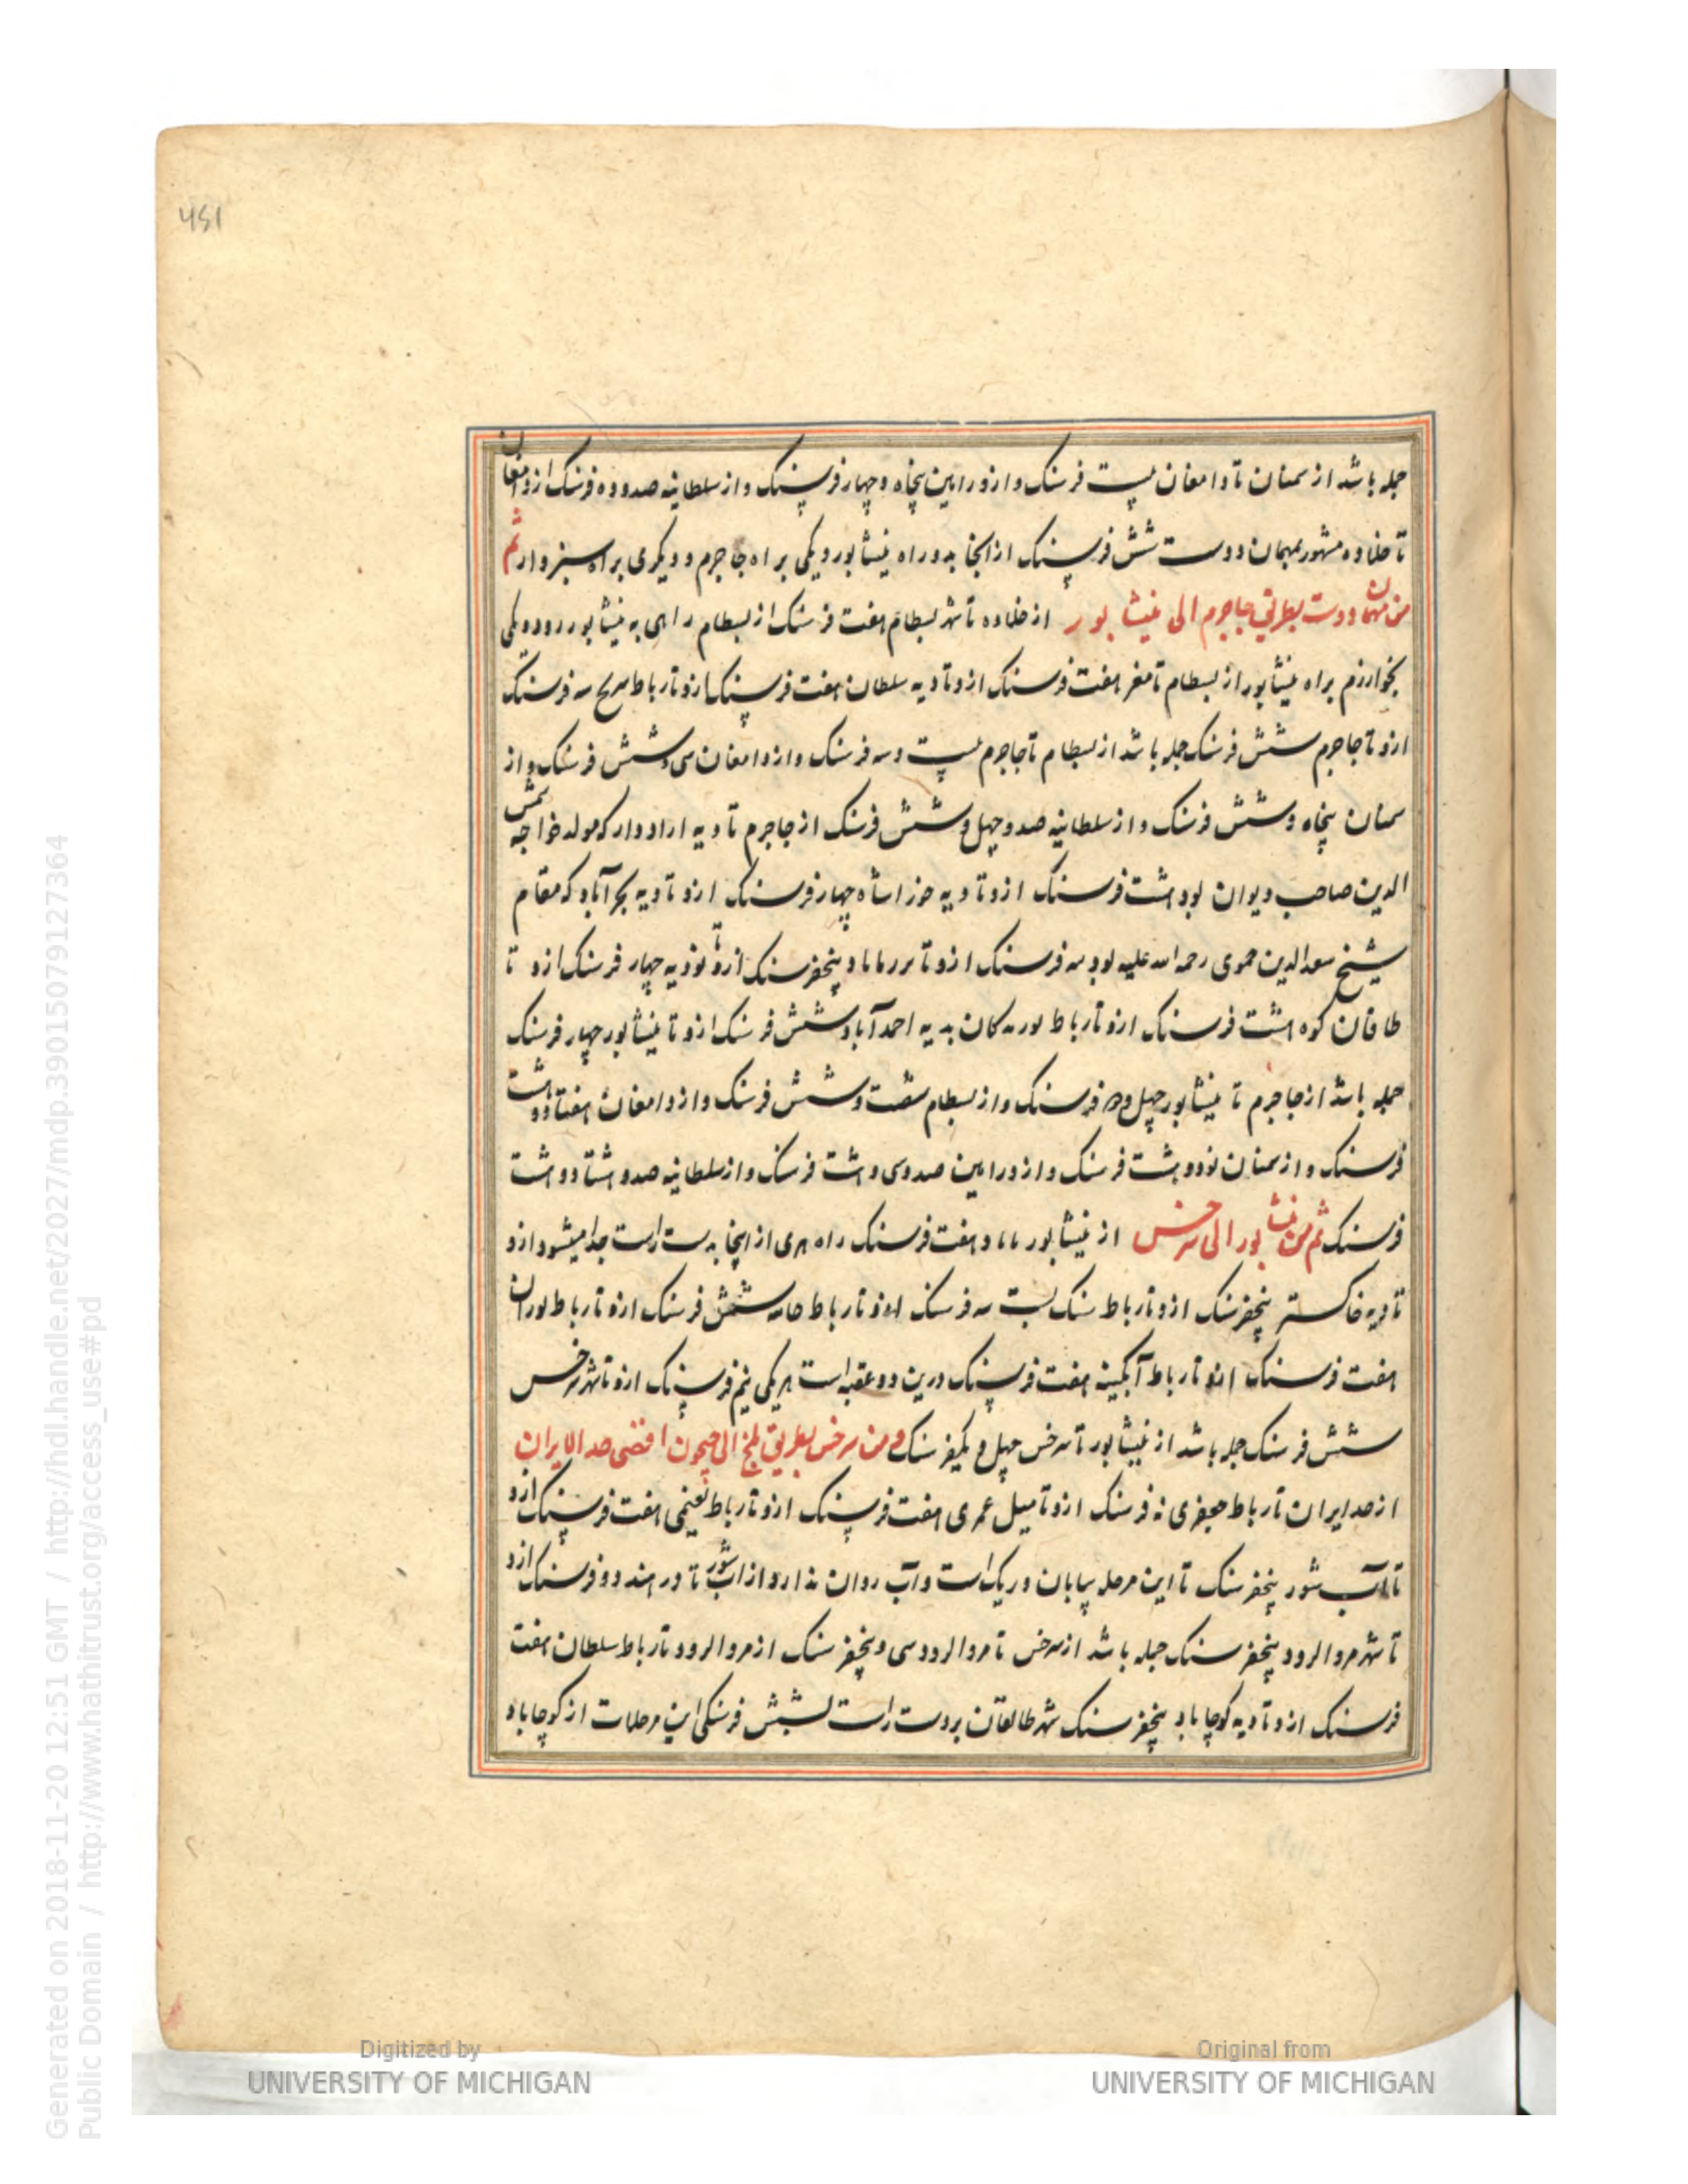 451
جمله باشد از سمنان تا دامغان بیست فرسنک و ازو رامین پنجاه و چهار فرسنک و از سلطانیه صد و ده فرسنک از دامغان
تا حداده مشهور بمهمان دوست شش فرسنک از انجا بدو راه نیشابور و یکی براه جاجرم و دیکری براه سبزوار ثم
من مهمان دوست بطریق جاجرم الی نیشابور از حداده تا شهر بسطام هفت فرسنک از بسطام راهی به نیشابور رود و یکی
بخوارزم براه نیشابور از بسطام تا مغز هفت فرسنک ازو تا دیه سلطان هفت فرسنک ازو تا رباط سه فرسنک
ازو تا جاجرم شش فرسنک جمله باشد از بسطام تا جاجرم بیست و سه فرسنک و از دامغان سی و شش فرسنک و از
سمنان پنجاه و شش فرسنک و از سلطانیه صد و چهل و شش فرسنک از جاجرم تا دیه ازادوار که مولد خواجه شمس
الدین صاحب دیوان بود هشت فرسنک ازو تا دیه خوراشاه چهار فرسنک ازو تا دیه بحرآباد که مقام
شیخ سعدالدین حموی رحمه الله علیه بود سه فرسنک ازو تا پنجفرسنک ازو تا نوذیه چهار فرسنک ازو تا
طاقان کوه هشت فرسنک ازو تا رباط بدیه احمدآباد شش فرسنک ازو تا نیشابور چهار فرسنک
جمله باشد از جاجرم تا نیشابور چهل و فرسنک و از بسطام شصت و شش فرسنک و از دامغان هفتاد و هشت
فرسنک و از سمنان نود و هشت فرسنک و از ورامین صد و سی و هشت فرسنک و از سلطانیه صد و هشتاد و هشت
فرسنک ثم من نیشابور الی سرخس از نیشابور هفت فرسنک راه هری از اینجا بدست راست جدا میشود ازو
تا دیه خاکستر پنجفرسنک ازو تا رباط سنک بست سه فرسنک ازو تا رباط شش فرسنک ازو تا رباط
هفت فرسنک ازو تا رباط آبکینه هفت فرسنک درین دو عقبه است هر یکی نیم فرسنک ازو تا شهر سرخس
شش فرسنک جمله باشد از نیشابور تا سرخس چهل و یکفرسنک و من سرخس بطریق بلخ الی جیحون اقصی حد الایران
از حد ایران تا رباط جعفری نه فرسنک ازو تا میل عمری هفت فرسنک ازو تا رباط نعیمی هفت فرسنک ازو
تا آب شور پنجفرسنک تا این مرحله بیابان و ریک است و آب روان ندارد از اب شور تا در هند دو فرسنک ازو
تا شهر مروالرود پنجفرسنک جمله باشد از سرخس تا مروالرود سی و پنجفرسنک از مروالرود تا رباط سلطان هفت
فرسنک ازو تا دیه کوچاباد پنجفرسنک شهر طالقان بردست راست بشش فرسنکی این مرحلات از کوچاباد
Digitized by
UNIVERSITY OF MICHIGAN
Original from
UNIVERSITY OF MICHIGAN
Generated on 2018-11-20 12:51 GMT / http://hdl.handle.net/2027/mdp.39015079127364
Public Domain / http://www.hathitrust.org/access_use#pd